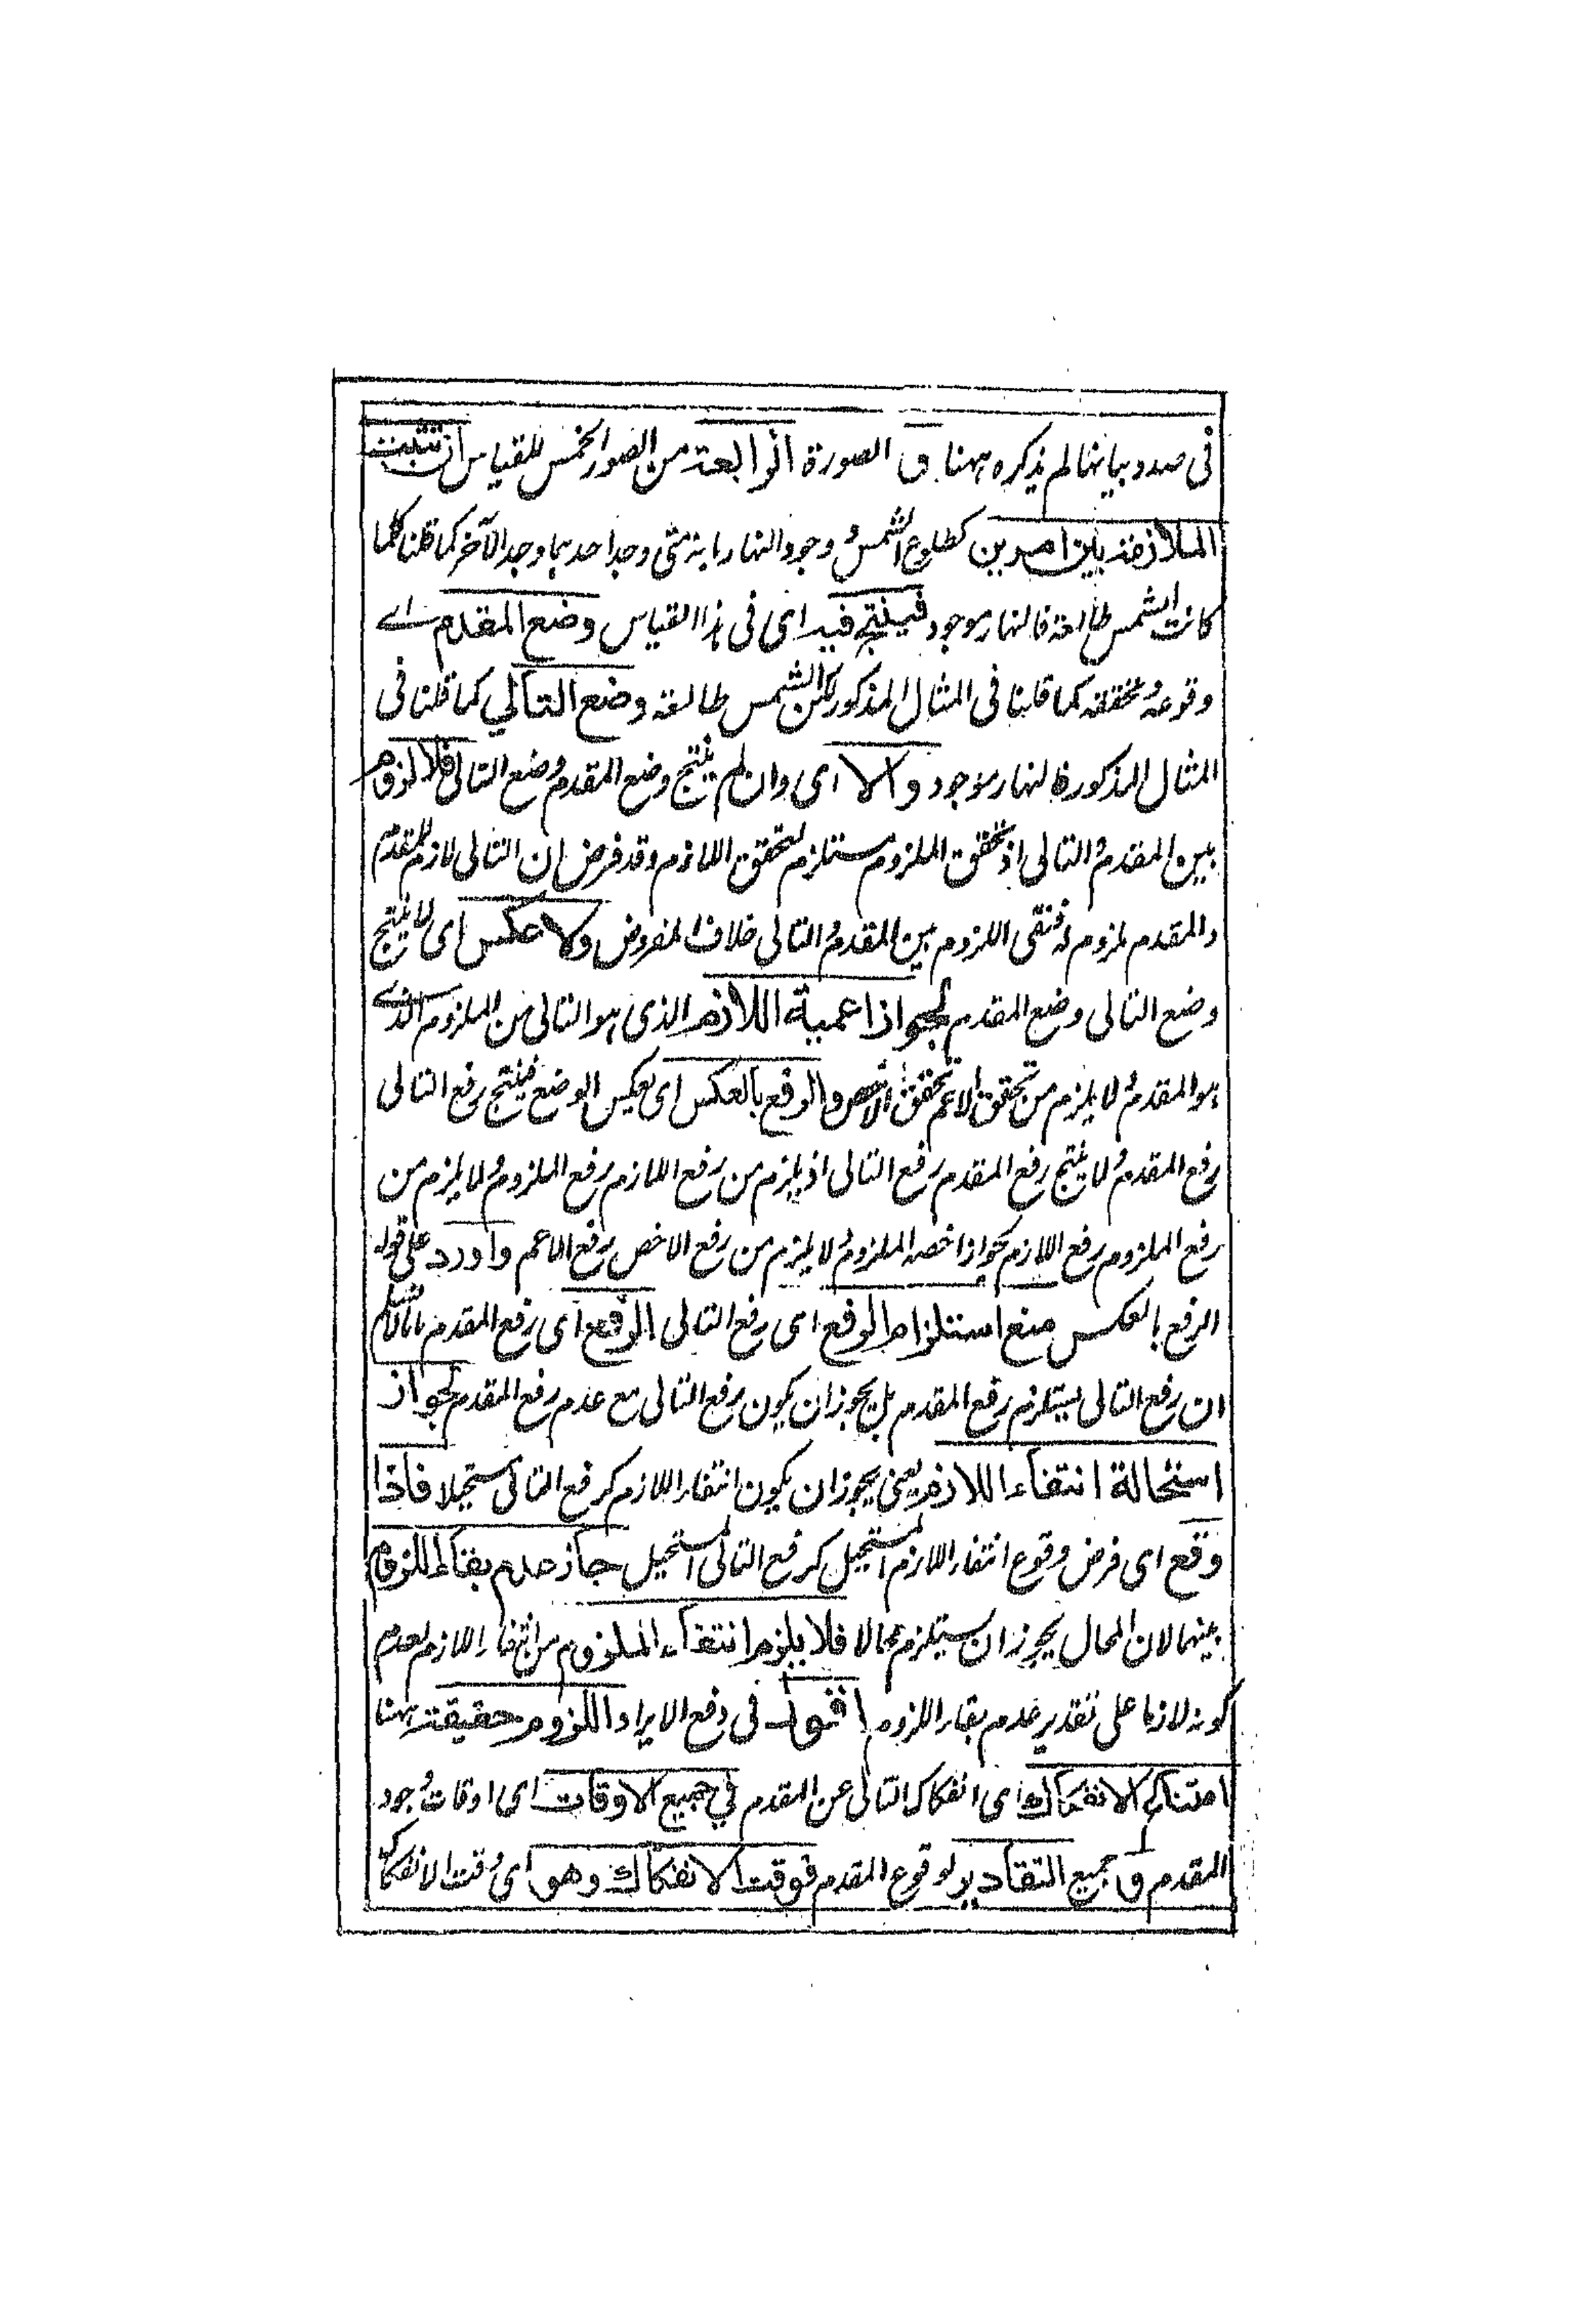 فى صدد بيانها لم يذكره ههنا و الصورة الرابعة من الصور الخمس للقياس ان تثبت
الملازمة بين امرين كطلوع الشمس ووجود النهار بانه متى وجد احدهما وجد الآخر كما قلنا كلما
كانت الشمس طالعة فالنهار موجود فينتج فيه اى فى هذا القياس وضع المقدم اے
وقوعه وتحققه كما قلنا فى المثال المذكور لكن الشمس طالعة وضع التالي كما قلنا فى
المثال المذكور فالنهار موجود والا اى وان لم ينتج وضع المقدم وضع التالى فلا لزوم
بين المقدم والتالى اذ تحقق الملزوم مستلزم لتحقق اللازم وقد فرض ان التالى لازم للمقدم
والمقدم ملزوم له فنفى اللزوم بين المقدم والتالى خلاف المفروض ولا عكس اى لا ينتج
وضع التالى وضع المقدم لجواز اعمية اللازم الذى هو التالى من الملزوم الذے
هو المقدم ولا يلزم من تحقق الاعم تحقق الاخص والرفع بالعكس اى بعكس الوضع فينتج رفع التالى
رفع المقدم ولا ينتج رفع المقدم رفع التالى اذ يلزم من رفع اللازم رفع الملزوم ولا يلزم من
رفع الملزوم رفع اللازم لجواز اخصية الملزوم ولا يلزم من رفع الاخص رفع الاعم واورد على قوله
الرفع بالعكس منع استلزام الرفع اى رفع التالى الرفع اى رفع المقدم بانا لا نسلم
ان رفع التالى يستلزم رفع المقدم بل يجوز ان يكون رفع التالى مع عدم رفع المقدم لجواز
استحالة انتفاء اللازم يعنى يجوز ان يكون انتفاء اللازم كرفع التالى مستحيلا فاذا
وقع اى فرض وقوع انتفاء اللازم المستحيل كرفع التالى المستحيل جاز عدم بقاء اللزوم
بينهما لان المحال يجوز ان يستلزم محالا فلا يلزم انتفاء الملزوم من انتفاء اللازم لعدم
كونه لازما على تقدير عدم بقاء اللزوم اقول فى دفع الايراد اللزوم حقيقته ههنا
امتناع الانفكاك اى انفكاك التالى عن المقدم في جميع الاوقات اى اوقات وجود
المقدم و جميع التقادير لوقوع المقدم فوقت الانفكاك وهو اى وقت الانفكاك